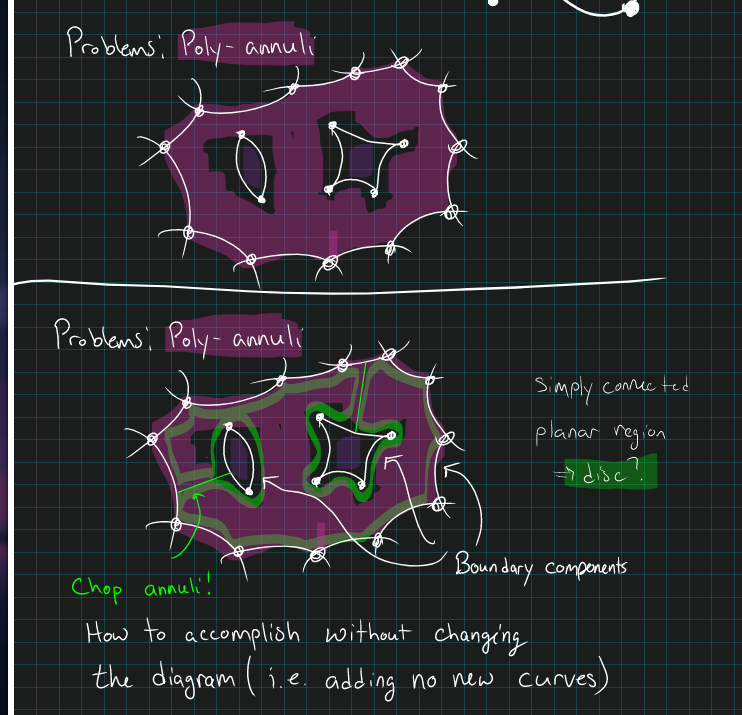 Problems: Poly-annuli
Problems: Poly-annuli
Simply connected
planar region
⇒ disc?
Boundary components
Chop annuli!
How to accomplish without changing
the diagram (i.e. adding no new curves)